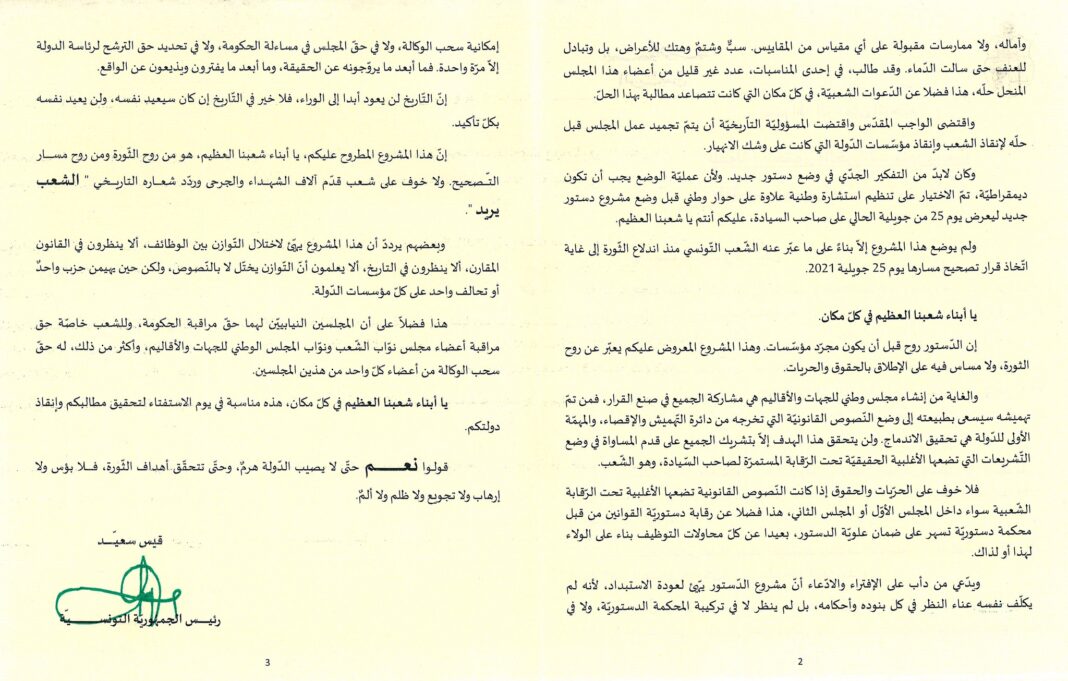 وآماله، ولا ممارسات مقبولة على أي مقياس من المقاييس. سبٌّ وشتمٌ وهتك للأعراض، بل وتبادل
للعنف حتى سالت الدّماء. وقد طالب، في إحدى المناسبات، عدد غير قليل من أعضاء هذا المجلس
المنحل حلّه، هذا فضلا عن الدّعوات الشعبيّة، في كلّ مكان التي كانت تتصاعد مطالبة بهذا الحلّ.
واقتضى الواجب المقدّس واقتضت المسؤوليّة التاّريخيّة أن يتمّ تجميد عمل المجلس قبل
حلّه لإنقاذ الشعب وإنقاذ مؤسّسات الدّولة التي كانت على وشك الانهيار.
وكان لابدّ من التفكير الجدّي في وضع دستور جديد. ولأن عمليّة الوضع يجب أن تكون
ديمقراطيّة، تمّ الاختيار على تنظيم استشارة وطنية علاوة على حوار وطني قبل وضع مشروع دستور
جديد ليعرض يوم 25 من جويلية الحالي على صاحب السيادة، عليكم أنتم يا شعبنا العظيم.
ولم يوضع هذا المشروع إلاّ بناءً على ما عبّر عنه الشّعب التّونسي منذ اندلاع الثّورة إلى غاية
اتّخاذ قرار تصحيح مسارها يوم 25 جويلية 2021.
يا أبناء شعبنا العظيم في كلّ مكان.
إن الدّستور روح قبل أن يكون مجرّد مؤسّسات. وهذا المشروع المعروض عليكم يعبّر عن روح
الثورة، ولا مساس فيه على الإطلاق بالحقوق والحريات.
والغاية من إنشاء مجلس وطني للجهات والأقاليم هي مشاركة الجميع في صنع القرار، فمن تمّ
تهميشه سيسعى بطبيعته إلى وضع النّصوص القانونيّة التي تخرجه من دائرة التّهميش والإقصاء، والمهمّة
الأولى للدّولة هي تحقيق الاندماج. ولن يتحقق هذا الهدف إلاّ بتشريك الجميع على قدم المساواة في وضع
التّشريعات التي تضعها الأغلبية الحقيقيّة تحت الرّقابة المستمرّة لصاحب السّيادة، وهو الشّعب.
فلا خوف على الحرّيات والحقوق إذا كانت النّصوص القانونية تضعها الأغلبية تحت الرّقابة
الشّعبية سواء داخل المجلس الأوّل أو المجلس الثاني، هذا فضلا عن رقابة دستوريّة القوانين من قبل
محكمة دستوريّة تسهر على ضمان علويّة الدستور، بعيدا عن كلّ محاولات التوظيف بناء على الولاء
لهذا أو لذاك.
ويدّعي من دأب على الإفتراء والادعاء أنّ مشروع الدّستور يهيّئ لعودة الاستبداد، لأنه لم
يكلّف نفسه عناء النظر في كل بنوده وأحكامه، بل لم ينظر لا في تركيبة المحكمة الدستوريّة، ولا في
2
إمكانية سحب الوكالة، ولا في حقّ المجلس في مساءلة الحكومة، ولا في تحديد حق الترشح لرئاسة الدولة
إلاّ مرّة واحدة. فما أبعد ما يروّجونه عن الحقيقة، وما أبعد ما يفترون ويذيعون عن الواقع.
إنّ التّاريخ لن يعود أبدا إلى الوراء، فلا خير في التّاريخ إن كان سيعيد نفسه، ولن يعيد نفسه
بكلّ تأكيد.
إنّ هذا المشروع المطروح عليكم، يا أبناء شعبنا العظيم، هو من روح الثّورة ومن روح مسار
التّصحيح. ولا خوف على شعب قدّم آلاف الشهداء والجرحى وردّد شعاره التاريخي " الشعب
يريد ".
وبعضهم يرددّ أن هذا المشروع يهيّئ لاختلال التّوازن بين الوظائف، ألا ينظرون في القانون
المقارن، ألا ينظرون في التاريخ، ألا يعلمون أنّ التّوازن يختّل لا بالنّصوص، ولكن حين يهيمن حزب واحدٌ
أو تحالف واحد على كلّ مؤسسات الدّولة.
هذا فضلاً على أن المجلسين النيابييّن لهما حقّ مراقبة الحكومة، وللشعب خاصّة حق
مراقبة أعضاء مجلس نوّاب الشّعب ونوّاب المجلس الوطني للجهات والأقاليم، وأكثر من ذلك، له حقّ
سحب الوكالة من أعضاء كلّ واحد من هذين المجلسين.
يا أبناء شعبنا العظيم في كلّ مكان، هذه مناسبة في يوم الاستفتاء لتحقيق مطالبكم وإنقاذ
دولتكم.
قولوا نعـــــم حتّى لا يصيب الدّولة هرمٌ، وحتّى تتحقّق أهداف الثّورة، فلا بؤس ولا
إرهاب ولا تجويع ولا ظلم ولا ألمٌ.
قيس سعيّـد
رئيــس الجمهوريّة التونســـيّة
3